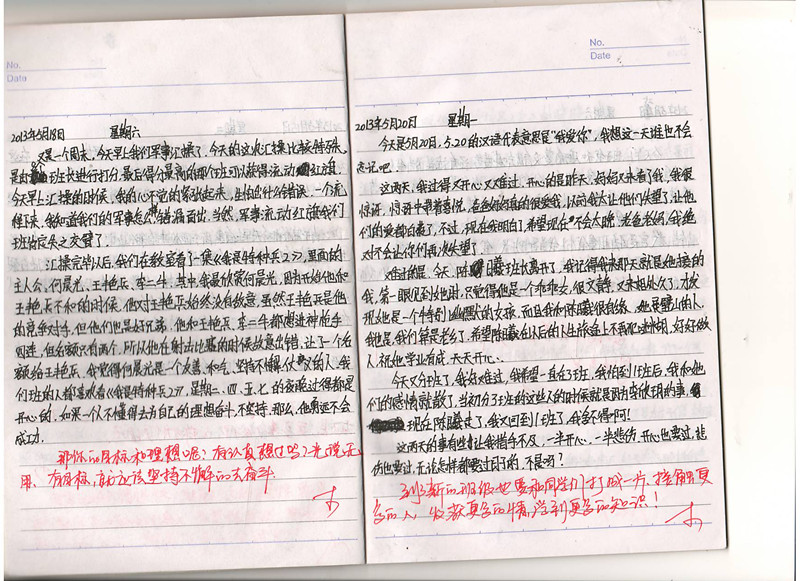 No.
Date
2013年5月18日 星期六
又是一个周末,今天早上我们军事汇操了,今天的这次汇操比较特殊,
是由班长进行打分,最后得分最高的那个班可以获得流动红旗,
今天早上汇操的时候,我的心不觉的紧张起来,生怕出什么错误,一个流
程下来,我知道我们的军事错漏百出,当然,军事流动红旗我们
班给失之交臂了。
汇操完毕以后,我们在教室看了一集《我是特种兵2》,里面的
主人公,何晨光、王艳兵、李二牛,其中,我最欣赏何晨光,因为开始他和
王艳兵不和的时候,他对王艳兵始终没有敌意,虽然王艳兵是他
的竞争对手,但他们也是好兄弟,他和王艳兵、李二牛都想进神枪手
四连,但名额只有两个,所以他在射击比赛的时候故意出错,让了一个名
额给王艳兵,我觉得何晨光是一个友善、和气、坚持不懈、仗义的人,我
们班的人都喜欢看《我是特种兵2》,星期二、四、五、七的夜晚过得都是
开心的,如果一个人不懂得去为自己的理想奋斗、不坚持,那么,他永远不会
成功。
那你的目标和理想呢?有认真想过吗?光说无
用,有目标,就应该坚持不懈的去奋斗
No.
Date
2013年5月20日 星期一
今天是5月20日,5.20的汉语代表意思是“我爱你”,我想这一天谁也不会
忘记吧。
这两天,我过得又开心又难过,开心的是昨天,妈妈又来看了我,我很
惊讶,惊讶中带着喜悦,爸爸妈妈真的很爱我,以前我太让他们失望了,让他
们的爱都白费了,不过,现在我明白了,希望现在不会太晚,老爸老妈,我绝
对不会让你们再次失望了。
难过的是,今天,陈曦班长离开了,我记得我来那天就是她接的
我,第一眼见到她时,只觉得他是一个乖乖女,很文静,又来相处久了,才发
现她是一个特别幽默的女孩,而且我和陈曦很有缘,她是璧山的人,
我也是,我们算是老乡了,希望陈曦在以后的人生旅途上不再犯迷糊,好好做
人,祝她学业有成,天天开心。
今天又分班了,我好难过,我希望一直在3班,我怕到1班后,我和她
们的感情就散了,当初分了班的这些人的时候就是因为李欣玥的事,
现在陈曦走了,我又回到1班了,我舍不得啊!
这两天的事有些让我措手不及,一半开心,一半悲伤,开心也要过,悲
伤也要过,无论怎样都要过日子的,不是吗?
到了新的班级也要和同学们打成一片,接触更
多的人,收获更多的情,学到更多的知识!